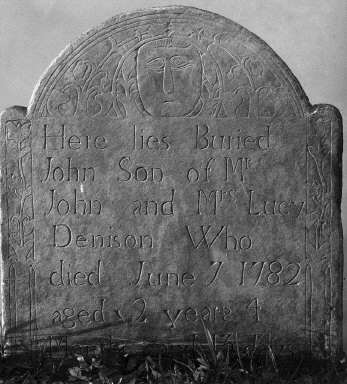 Here lies Buried
John Son of Mr.
John and Mrs Lucy
Denison Who
died June 7 1782
aged 2 years 4